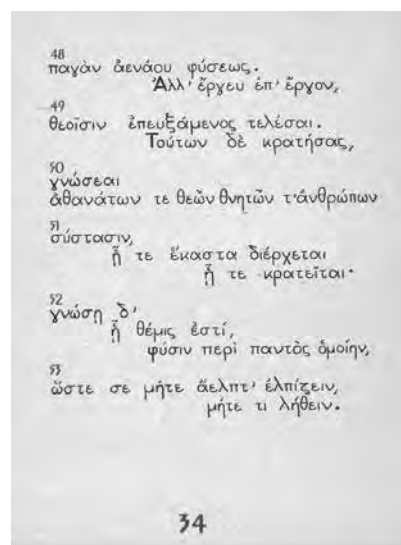 48
παγὰν ἀενάου φύσεως.
Ἀλλ' ἔρχευ ἐπ' ἔργον,
49
θεοῖσιν ἐπευξάμενος τελέσαι.
Τούτων δὲ κρατήσας,
50
γνώσεαι
ἀθανάτων τε θεῶν θνητῶν τ' ἀνθρώπων
51
σύστασιν,
ᾗ τε ἕκαστα διέρχεται
ᾗ τε κρατεῖται·
52
γνώσῃ δ',
ᾗ θέμις ἐστί,
φύσιν περὶ παντὸς ὁμοίην,
53
ὥστε σε μήτε ἄελπτ' ἐλπίζειν,
μήτε τι λήθειν.
34